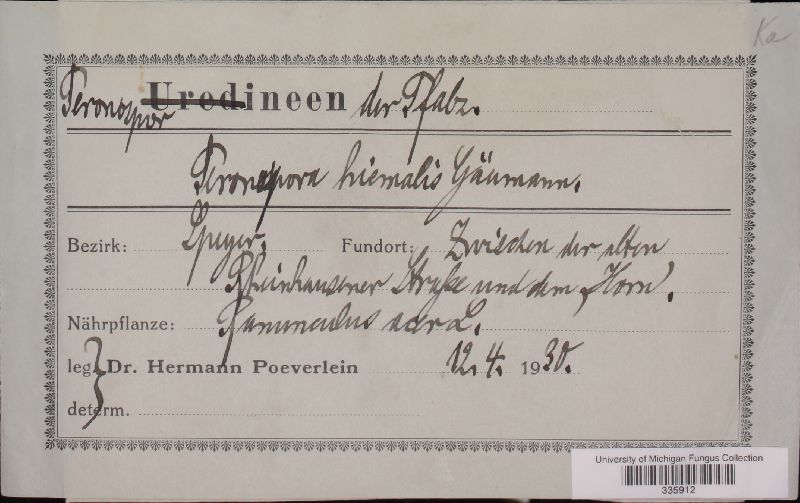 Ka
Peronosporineen der Pfalz.
Peronospora hiemalis Gäumann.
Bezirk: Speyer. Fundort: Zwischen der alten
Rheinhausener Straße und dem „Horn“.
Nährpflanze: Ranunculus acer L.
leg. Dr. Hermann Poeverlein 12. 4. 1930.
determ.
University of Michigan Fungus Collection
335912